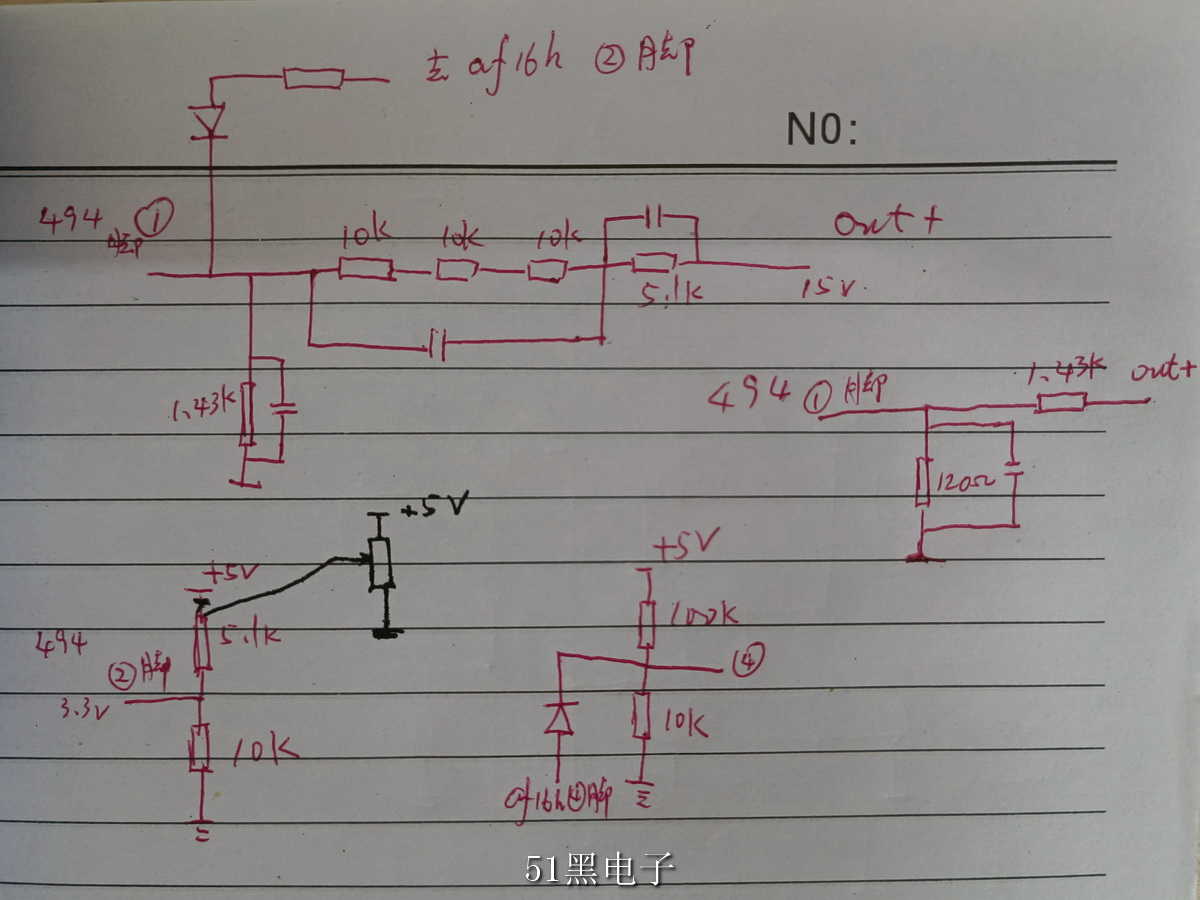 去 af16h ② 脚
N0:
494 ① 脚
10k 10k 10k
out +
5.1k
15V.
1.43k
494 ① 脚 1.43k out+
120Ω
+5V
+5V
5.1k
494
② 脚
3.3V
10K
+5V
100K
④
10K
af16h④脚
51黑电子